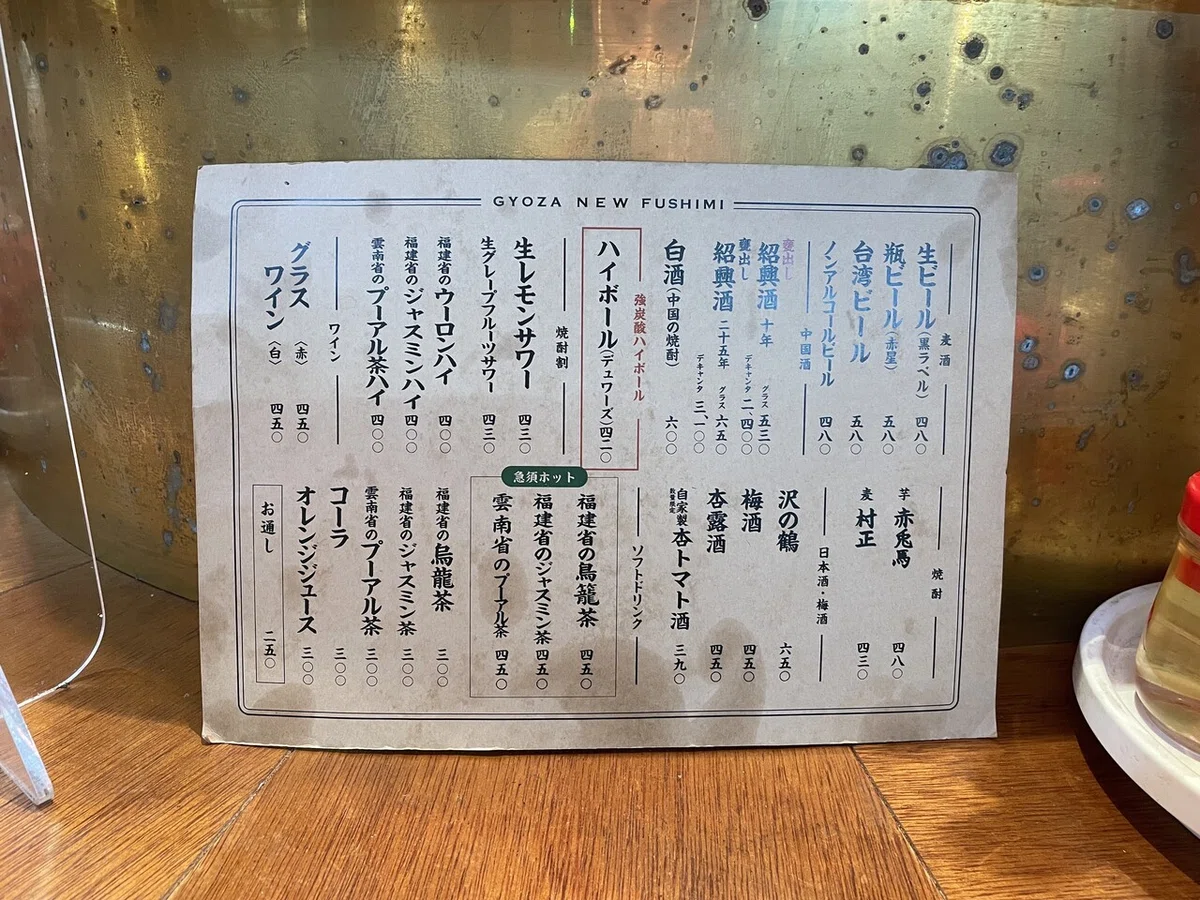 GYOZA NEW FUSHIMI
麦酒
生ビール(黒ラベル) 四八〇
瓶ビール(赤星) 五八〇
台湾ビール 五八〇
ノンアルコールビール 四八〇
中国酒
甕出し
紹興酒 十年 グラス 五三〇
デキャンタ 二、四〇〇
甕出し
紹興酒 二十五年 グラス 六五〇
デキャンタ 三、一〇〇
白酒(中国の焼酎) 六〇〇
強炭酸ハイボール
ハイボール(デュワーズ) 四二〇
焼酎割
生レモンサワー 四三〇
生グレープフルーツサワー 四三〇
福建省のウーロンハイ 四〇〇
福建省のジャスミンハイ 四〇〇
雲南省のプーアル茶ハイ 四〇〇
ワイン
グラスワイン
〈赤〉 四五〇
〈白〉 四五〇
焼酎
芋 赤兎馬 四八〇
麦 村正 四三〇
日本酒・梅酒
沢の鶴 六五〇
梅酒 四五〇
杏露酒 四五〇
自家製 数量限定 杏トマト酒 三九〇
ソフトドリンク
急須ホット
福建省の烏龍茶 四五〇
福建省のジャスミン茶 四五〇
雲南省のプーアル茶 四五〇
福建省の烏龍茶 三〇〇
福建省のジャスミン茶 三〇〇
雲南省のプーアル茶 三〇〇
コーラ 三〇〇
オレンジジュース 三〇〇
お通し 二五〇